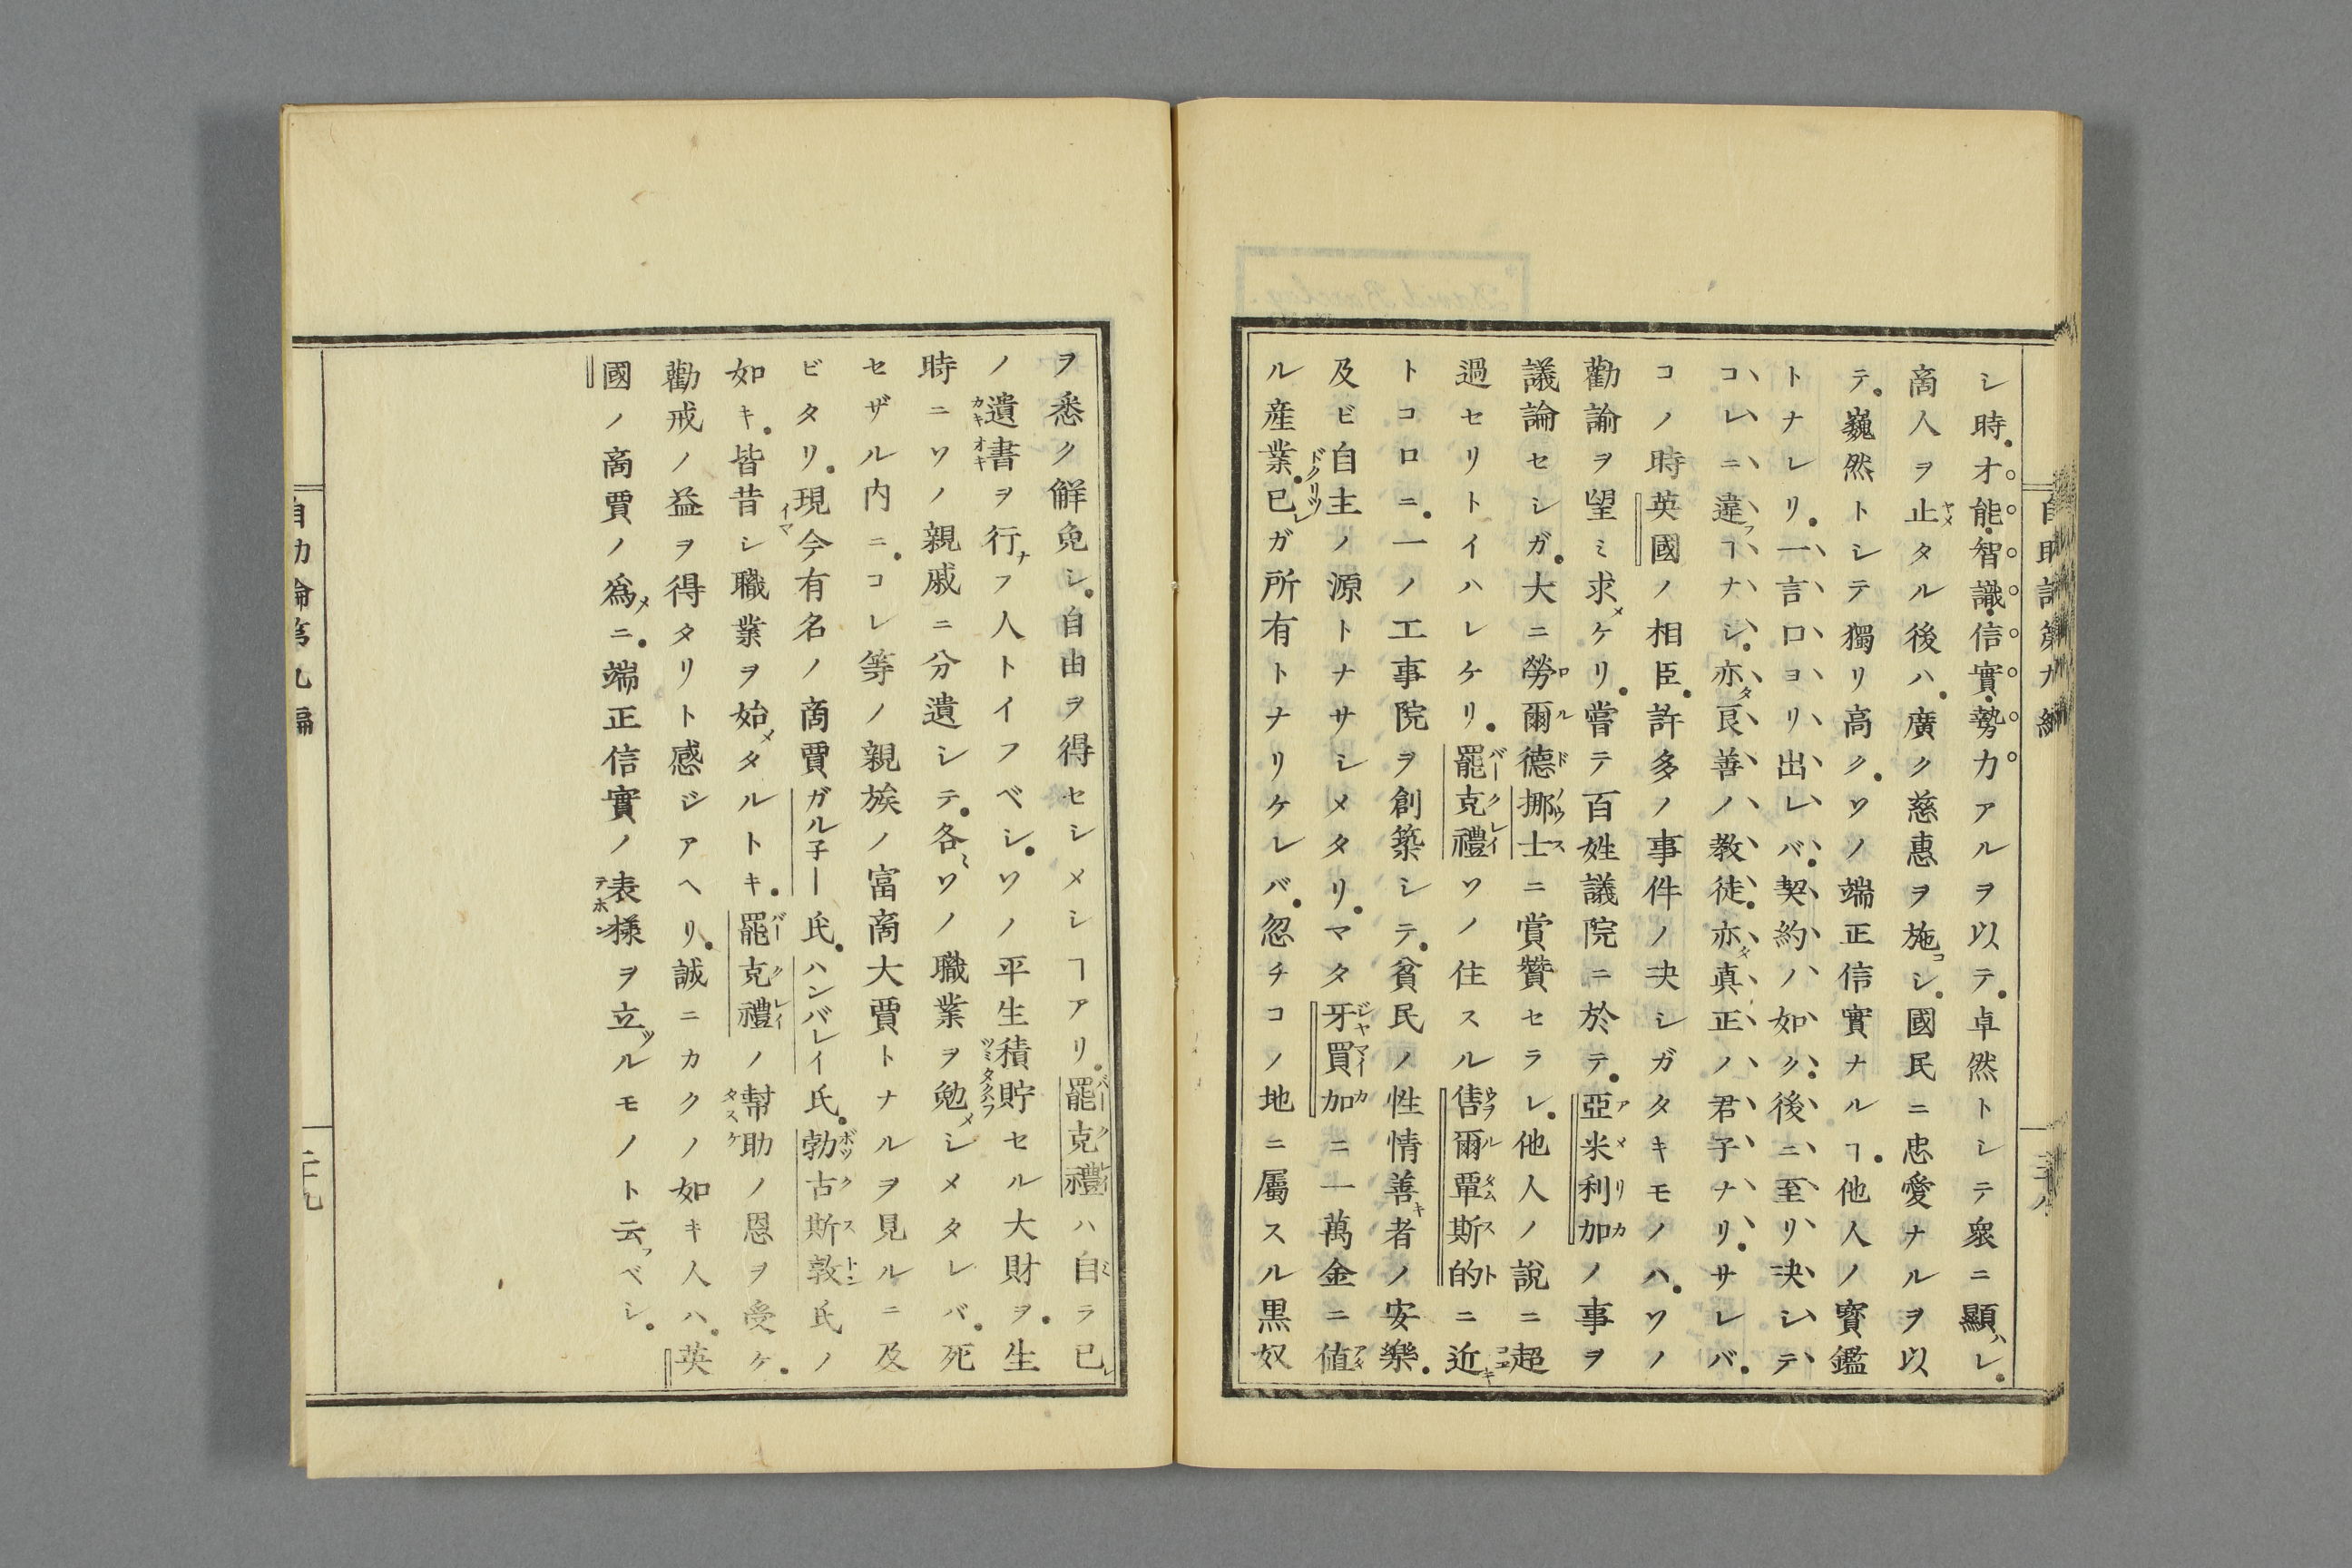 シ時。才能。智識。信實。勢力アルヲ以テ。卓然トシテ衆ニ顯ハレ。
商人ヲ止タル後ハ。廣ク慈惠ヲ施コシ。國民ニ忠愛ナルヲ以
テ。巍然トシテ獨リ高ク。ソノ端正信實ナルヿ。他人ノ寳鑑
トナレリ。一言口ヨリ出レバ。契約ノ如ク。後ニ至リ決シテ
コレニ違フヿナシ。亦タ良善ノ教徒。亦タ真正ノ君子ナリ。サレバ。
コノ時英國ノ相臣。許多ノ事件ノ決シガタキモノハ。ソノ
勸諭ヲ望ミ求メケリ。嘗テ百姓議院ニ於テ。亞米利加ノ事ヲ
議論セシガ。大ニ勞爾德挪士ニ賞贊セラレ。他人ノ說ニ超
過セリトイハレケリ。罷克禮ソノ住スル倍爾覃斯的ニ近キ
トコロニ。一ノ工事院ヲ創築シテ。貧民ノ性情善キ者ノ安樂。
及ビ自主ノ源トナサシメタリ。マタ牙買加ニ一萬金ニ値
ル産業。已レガ所有トナリケレバ。忽チコノ地ニ屬スル黒奴
ヲ悉ク觧免シ。自由ヲ得セシメシヿアリ。罷克禮ハ自ミラ已レ
ノ遺書ヲ行ナフ人トイフベシ。ソノ平生積貯セル大財ヲ。生
時ニソノ親戚ニ分遺シテ。各ミソノ職業ヲ勉メシメタレバ。死
セザル内ニ。コレ等ノ親族ノ富商大賈トナルヲ見ルニ及
ビタリ。現今有名ノ商賈ガル子ー氏。ハンバレイ氏。勃古斯敦氏ノ
如キ。皆昔シ職業ヲ始メタルトキ。罷克禮ノ幇助ノ恩ヲ受ケ。
勸戒ノ益ヲ得タリト感ジアヘリ。誠ニカクノ如キ人ハ。英
國ノ商賈ノ爲メニ。端正信實ノ表樣ヲ立ツルモノト云フベシ。
自助論第九編
二十九